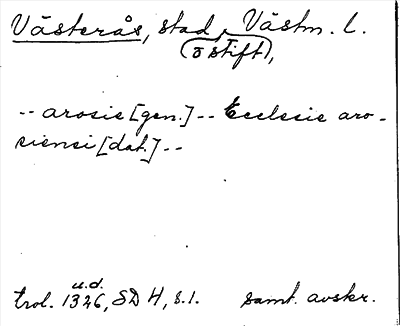 Västerås, stad, Västm. l.
(o stift),
-- arosie [gen.] -- Ecclesie aro-
siensi [dat.] --
u.d.
trol. 1326, SD 4, s. 1. samt. avskr.